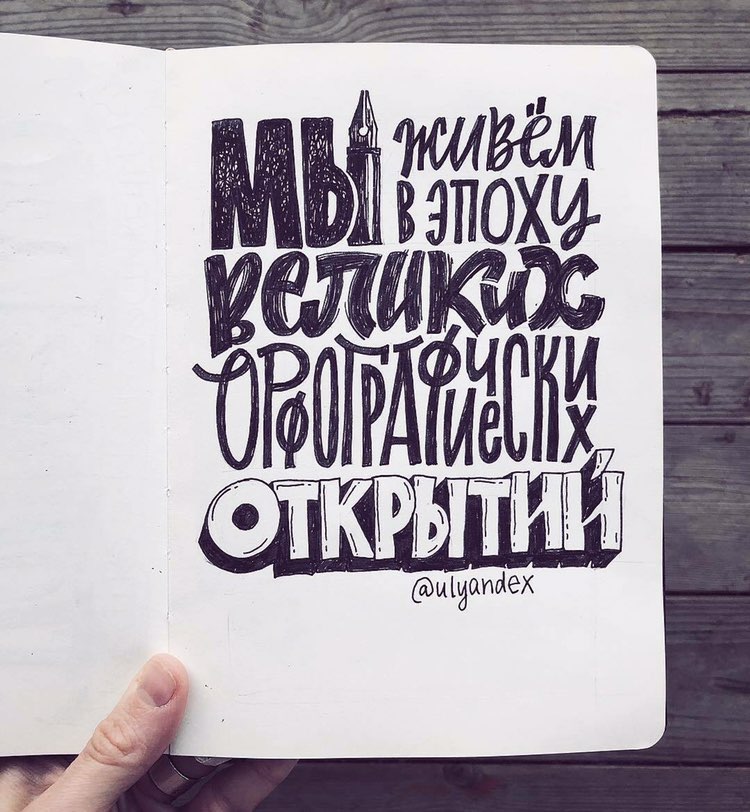 Мы живём
в эпоху
великих
орфографических
открытий
@ulyandex